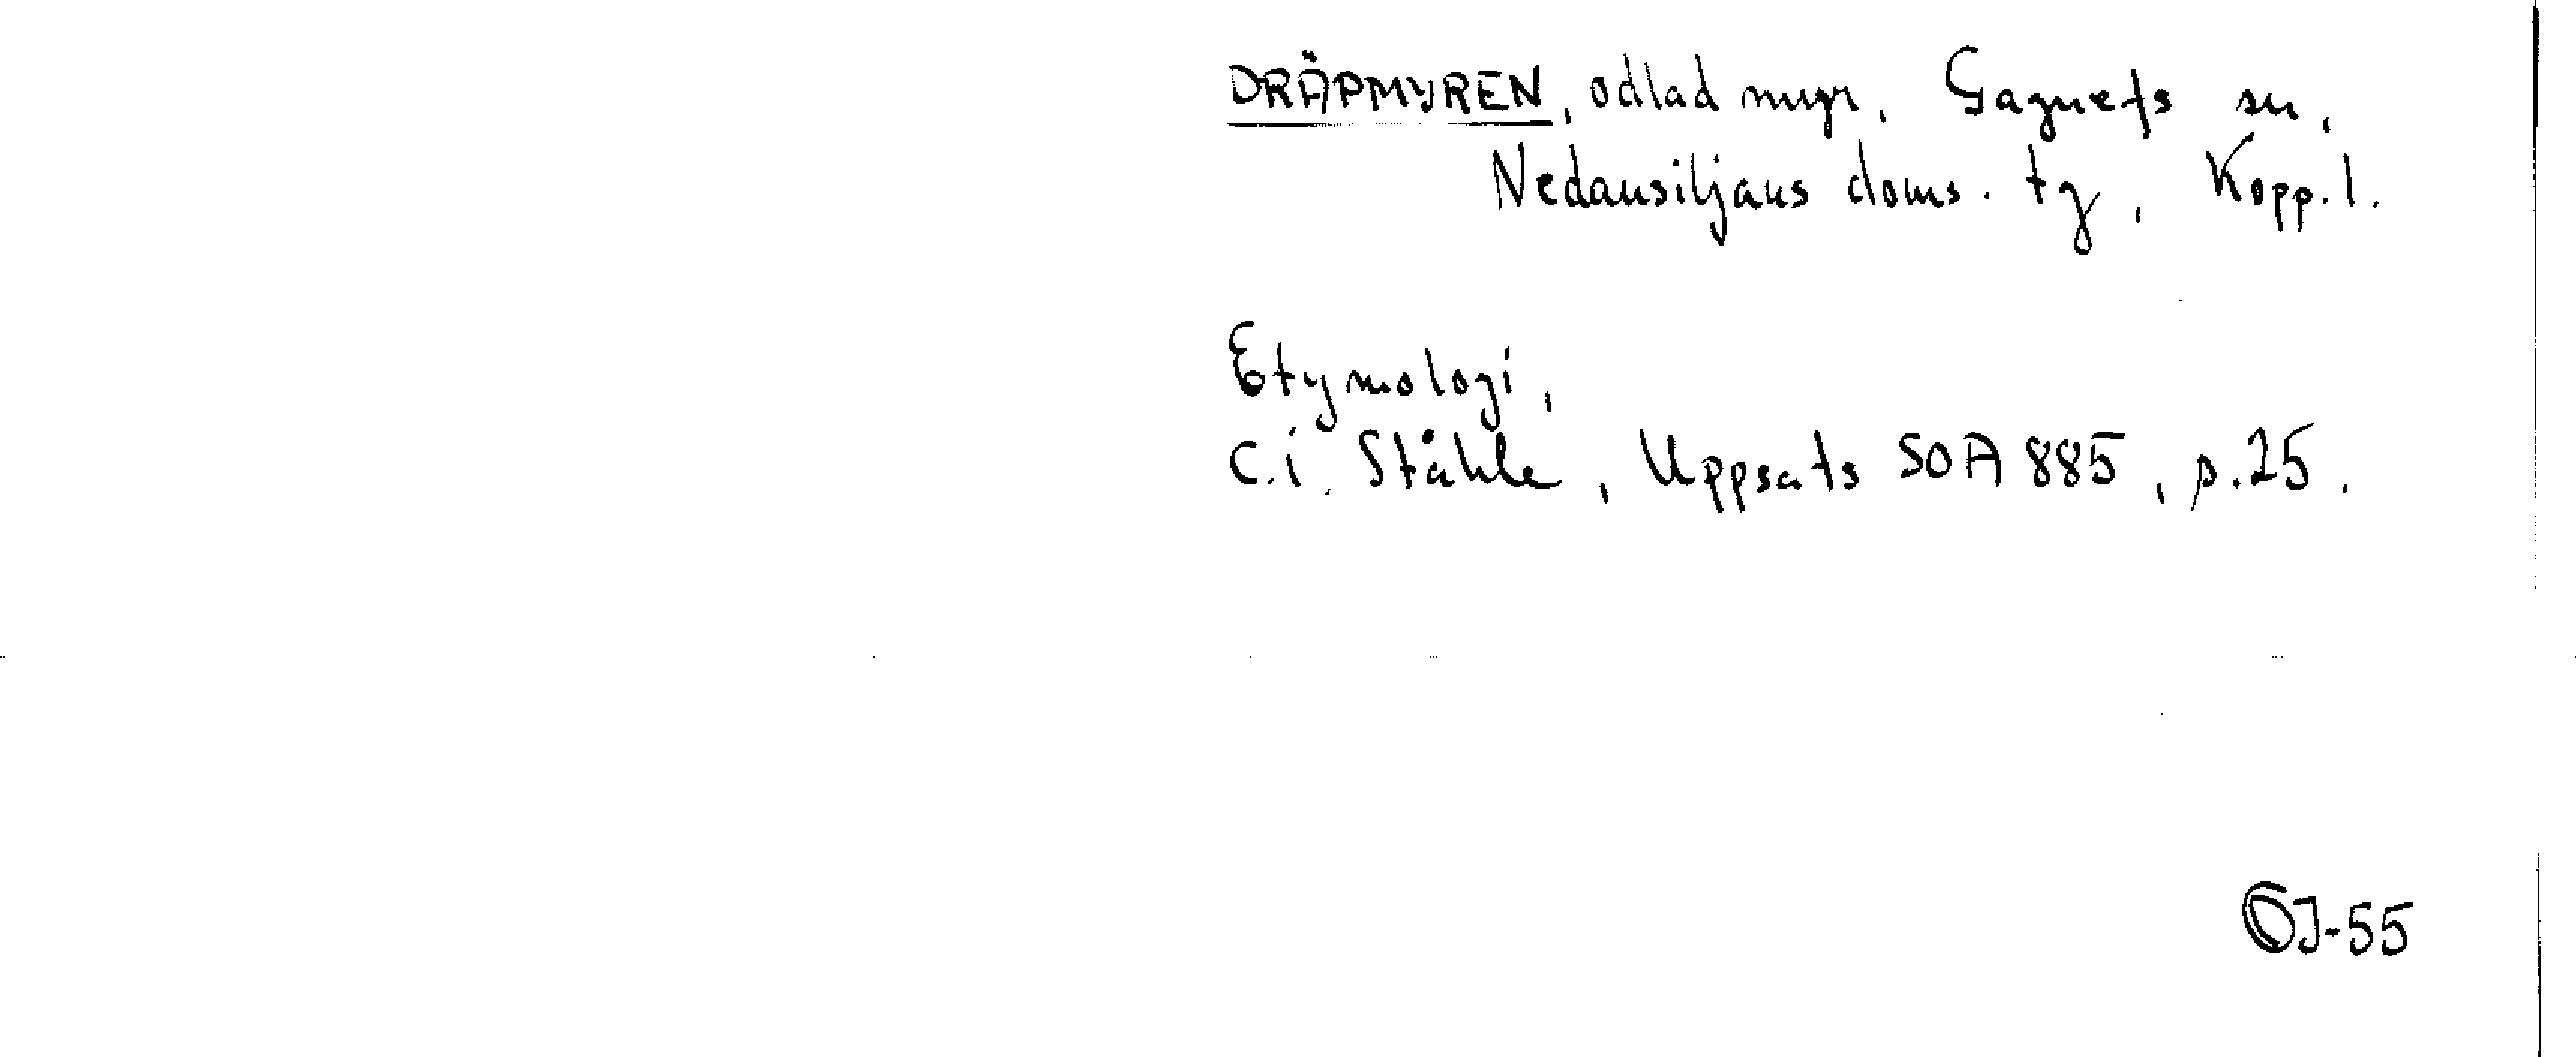 DRÄPMYREN, odlad myr, Gagnefs sn,
Nedansiljans doms. tg, Kopp. l.
Etymologi,
C. i. Ståhle, Uppsats SOA 885, p. 25.
ÖJ-55